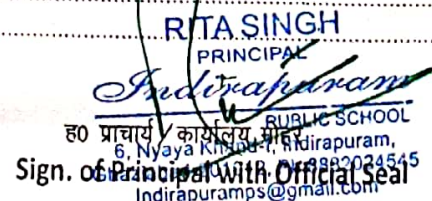 RITA SINGH
PRINCIPAL
Indirapuram
PUBLIC SCHOOL
ह० प्राचार्य / कार्यालय मोहर
6, Nyaya Khand-I, Indirapuram,
Sign. of Principal with Official Seal
Indirapuramps@gmail.com